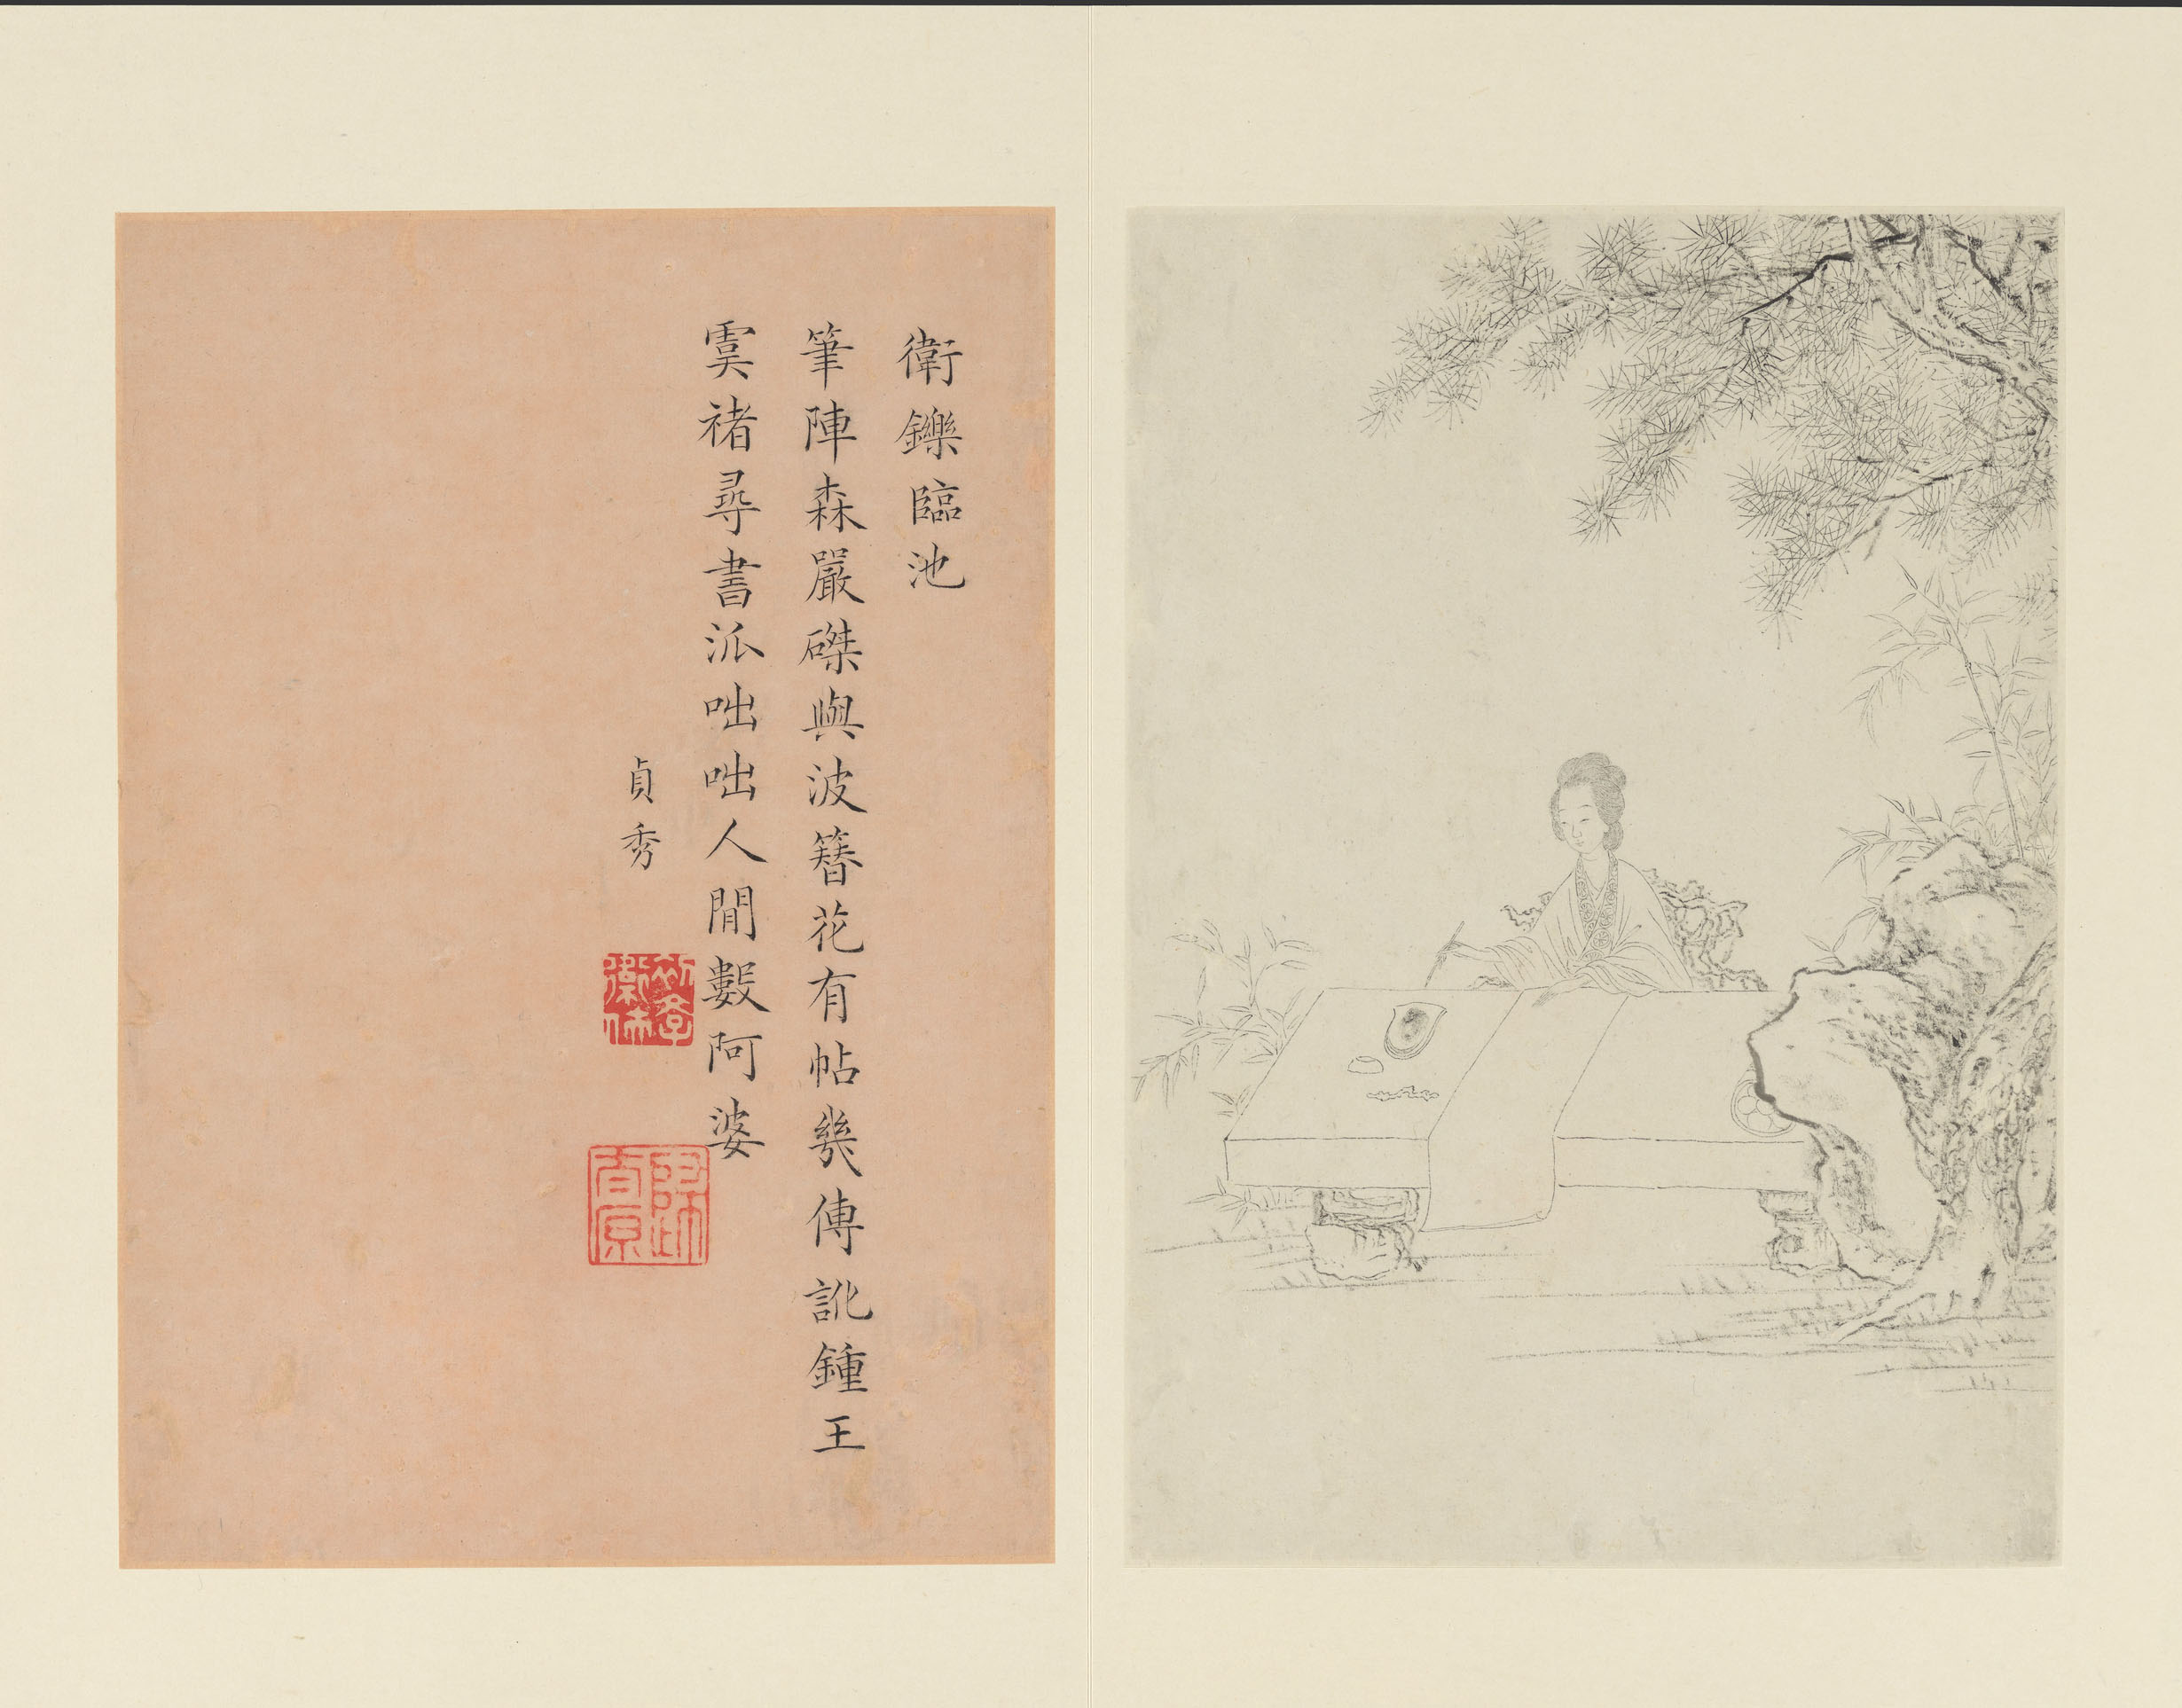 衛鑠臨池
筆陣森嚴磔與波簪花有帖幾傳訛鍾王
虞褚尋書派咄咄人間數阿婆
貞秀